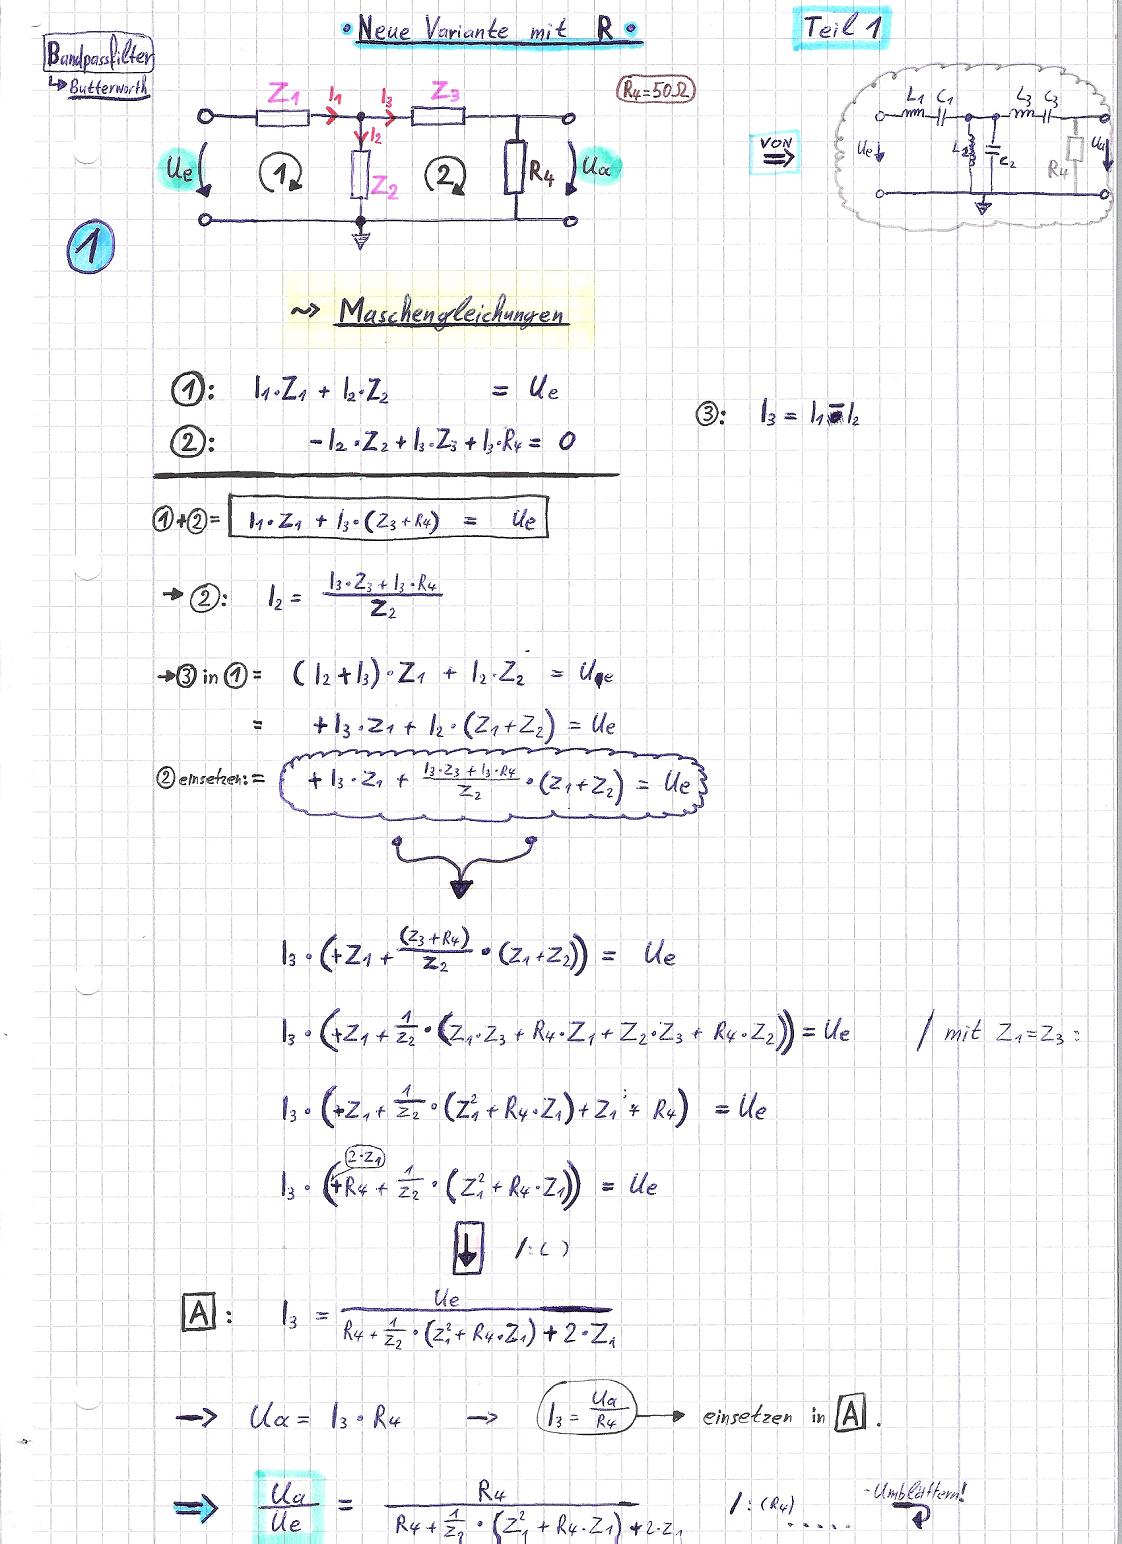 • Neue Variante mit R •
Teil 1
Bandpassfilter
↳ Butterworth
Z1 I1 I3 Z3
R4=50Ω
I2
Ue 1 Z2 2 R4 Ua
VON
⇒
L1 C1 L3 C3
Ue L2 C2 R4 Ua
1
~> Maschengleichungen
①: I1·Z1 + I2·Z2 = Ue
③: I3 = I1 - I2
②: -I2·Z2 + I3·Z3 + I3·R4 = 0
①+②= I1·Z1 + I3·(Z3+R4) = Ue
→ ②: I2 = (I3·Z3 + I3·R4)/Z2
→ ③ in ① = (I2+I3)·Z1 + I2·Z2 = Ue
= +I3·Z1 + I2·(Z1+Z2) = Ue
② einsetzen: = +I3·Z1 + (I3·Z3 + I3·R4)/Z2 · (Z1+Z2) = Ue
I3·(+Z1 + (Z3+R4)/Z2 · (Z1+Z2)) = Ue
I3·(+Z1 + 1/Z2 · (Z1·Z3 + R4·Z1 + Z2·Z3 + R4·Z2)) = Ue / mit Z1=Z3:
I3·(+Z1 + 1/Z2 · (Z1² + R4·Z1) + Z1 + R4) = Ue
2·Z1
I3·(+R4 + 1/Z2 · (Z1² + R4·Z1)) = Ue
↓ /:( )
A: I3 = Ue/(R4 + 1/Z2 · (Z1² + R4·Z1) + 2·Z1)
→ Ua = I3·R4 → I3 = Ua/R4 → einsetzen in A.
⇒ Ua/Ue = R4/(R4 + 1/Z2 · (Z1² + R4·Z1) + 2·Z1) /:(R4) ..... -Umblättern!